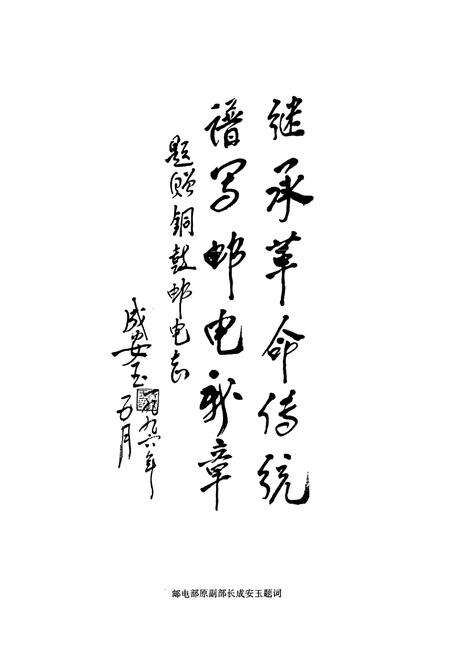 继承革命传统
谱写邮电新章
题赠铜鼓邮电志
成安玉
一九九六年
五月
邮电部原副部长成安玉题词